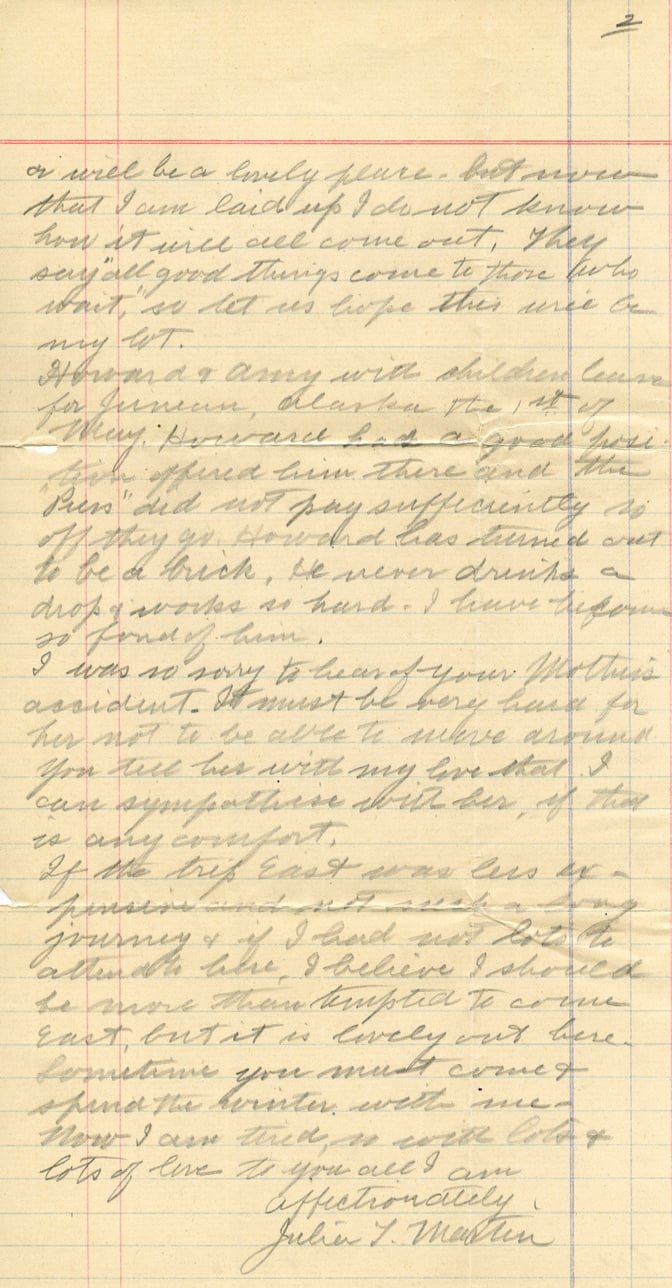 2
or will be a lovely place - but now
that I am laid up I do not know
how it will all come out. They
say "all good things come to those who
wait," so let us hope this will be
my lot.
Howard & Amy with children leave
for Juneau, Alaska the 1st of
May. Howard had a good posi-
tion offered him there and the
did not pay sufficiently so
off they go. Howard has turned out
to be a brick. He never drinks a
drop & works so hard - I have become
so fond of him.
I was so sorry to hear of your Mother's
accident. It must be very hard for
her not to be able to move around
You tell her with my love that I
can sympathise with her, if that
is any comfort.
If the trip East was less ex-
pensive and not such a long
journey & if I had not lots to
attend to here, I believe I should
be more than tempted to come
East, but it is lovely out here.
Sometime you must come &
spend the winter with me -
Now I am tired, so with lots &
lots of love to you all I am
affectionately,
Julia Martin